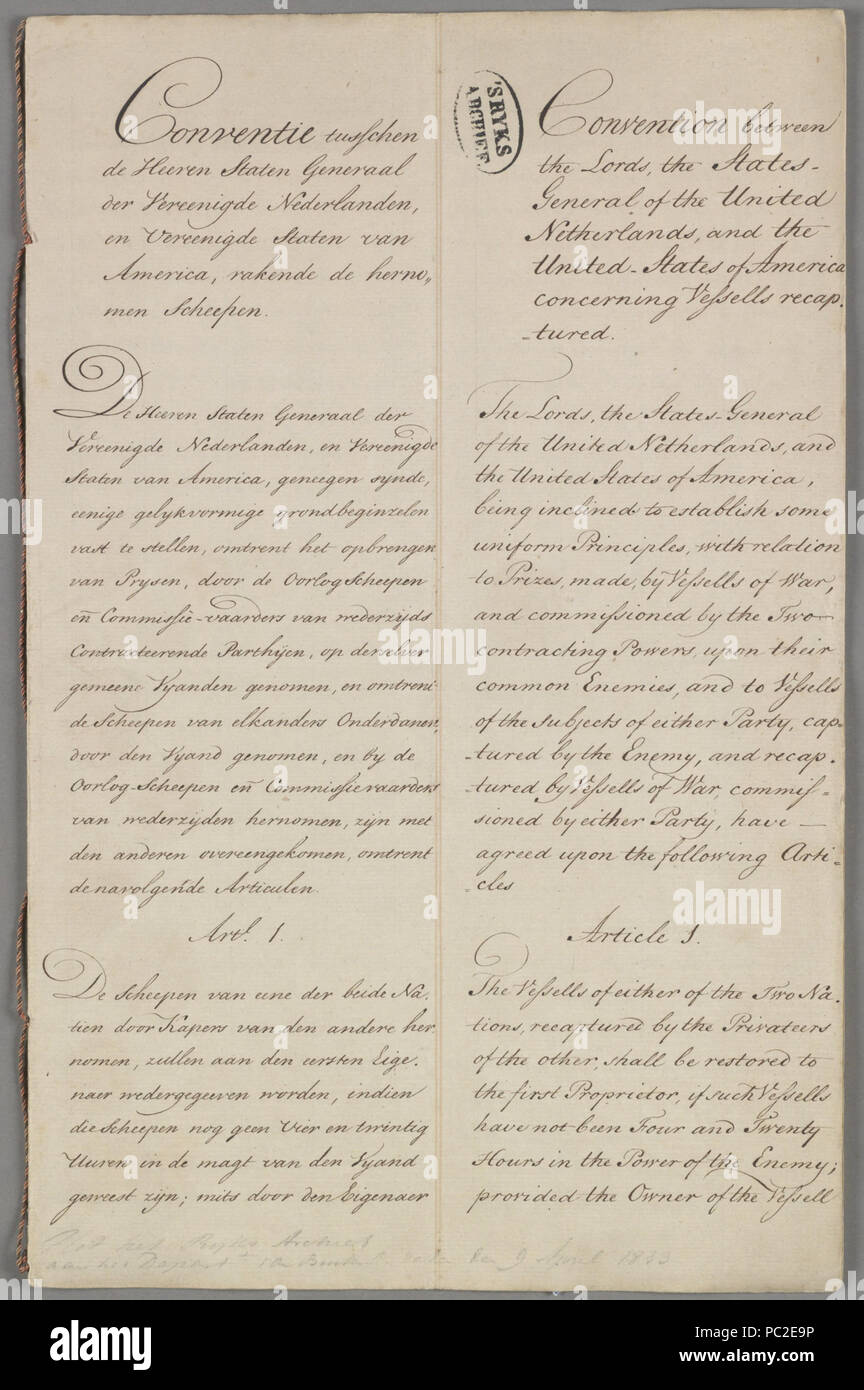 Conventie tusschen
de Heeren Staten Generaal
der Vereenigde Nederlanden,
en Vereenigde Staten van
America, rakende de herno„
men Scheepen.
De Heeren Staten Generaal der
Vereenigde Nederlanden, en Vereenigde
Staten van America, geneegen synde,
eenige gelykvormige grondbeginzelen
vast te stellen, omtrent het opbrengen
van Prysen, door de Oorlog Scheepen
en̄ Commissie-vaarders van wederzijds
Contracteerende Parthijen, op derzelver
gemeene Vyanden genomen, en omtrent
de Scheepen van elkanders Onderdanen,
door den Vyand genomen, en by de
Oorlog-Scheepen en̄ Commissievaarders
van wederzijden hernomen, zijn met
den anderen overeengekomen, omtrent
de navolgende Articulen.
Artl. 1.
De Scheepen van eene der beide Na.
tien door Kapers van den andere her
nomen, zullen aan den eersten Eige.
naer wedergegeeven worden, indien
die Scheepen nog geen Vier en twintig
Uuren in de magt van den Vyand
geweest zijn; mits door den Eigenaer
'S RYKS
ARCHIEF
Convention between
the Lords, the States-
General of the United
Netherlands, and the
United-States of America
concerning Vessells recap.
-tured.
The Lords, the States-General
of the United Netherlands, and
the United States of America,
being inclined to establish some
uniform Principles, with relation
to Prizes, made, by Vessells of War,
and commissioned by the Two
contracting Powers, upon their
common Enemies, and to Vessells
of the subjects of either Party, cap-
-tured by the Enemy, and recap.
-tured by Vessells of War, commis-
sioned by either Party, have —
agreed upon the following Arti-
-cles
Article 1.
The Vessells of either of the Two Na.
tions, recaptured by the Privateers
of the other, shall be restored to
the first Proprietor, if such Vessells
have not been Four and Twenty
Hours in the Power of the Enemy;
provided the Owner of the Vessell
het Ryks Archief
9 April 1833
alamy
alamy
Image ID: PC2E9P
www.alamy.com